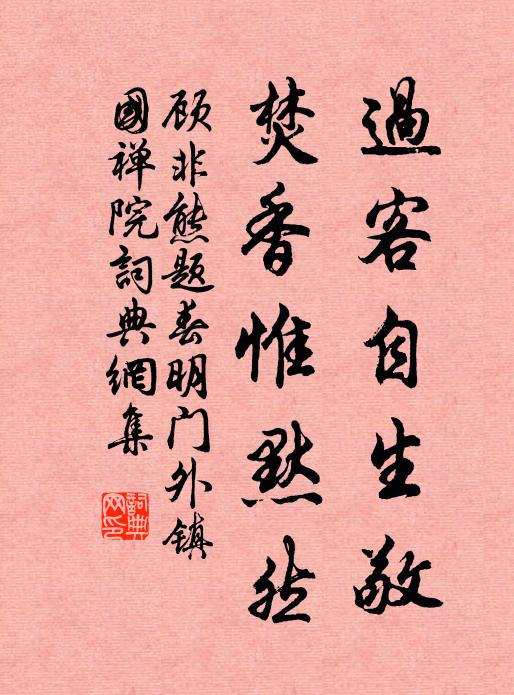 過客自生敬
焚香惟默然
顾非熊题春明门外镇
國禅院詞典網集
詞典网印